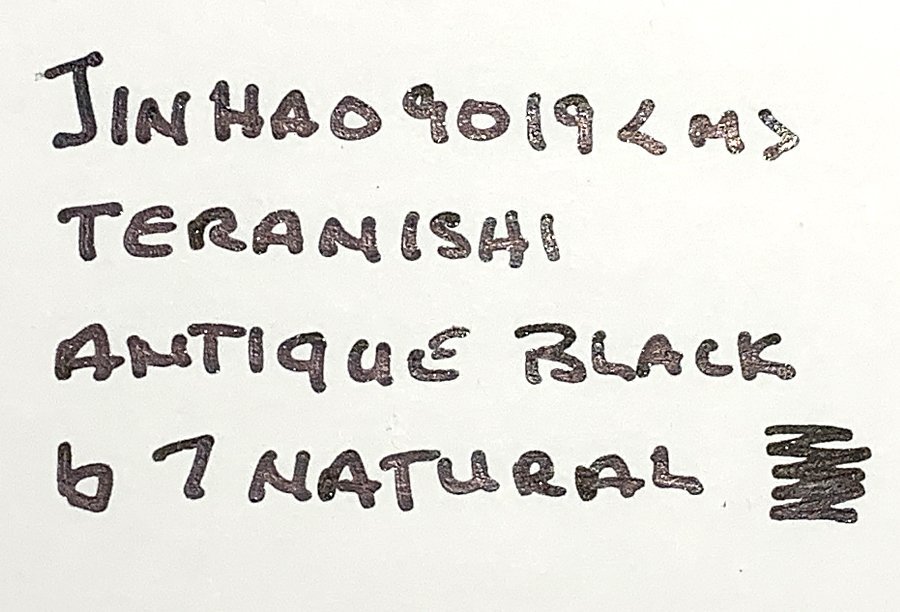 JINHAO 9019 <M>
TERANISHI
ANTIQUE BLACK
b7 NATURAL